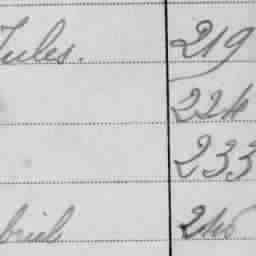 Jules. 219
224
233
briel 246